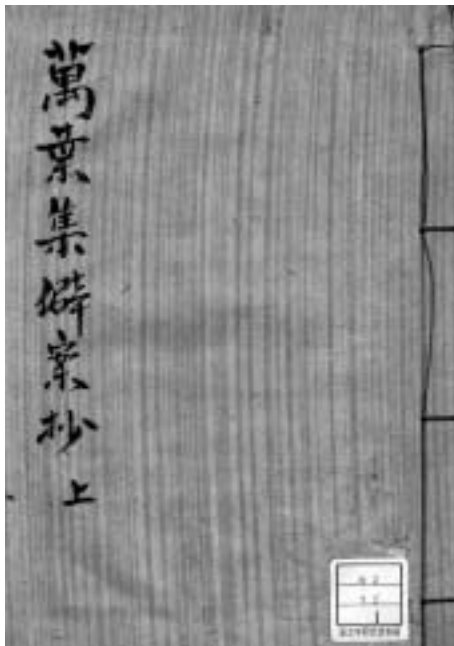 萬葉集僻案抄 上
1